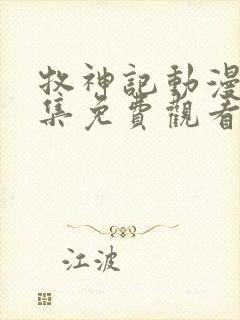 牧神記動漫
集免費觀看
江波